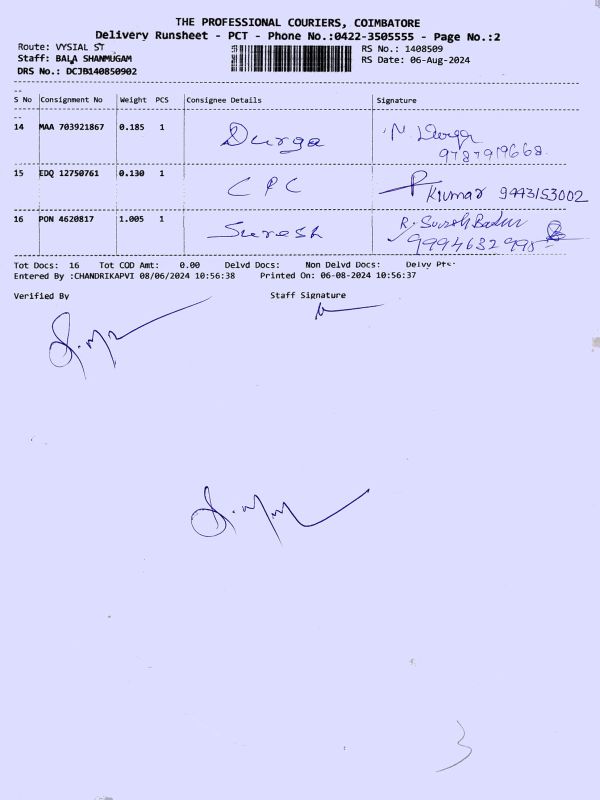 THE PROFESSIONAL COURIERS, COIMBATORE
Delivery Runsheet - PCT - Phone No.:0422-3505555 - Page No.:2
Route: VYSIAL ST RS No.: 1408509
Staff: BALA SHANMUGAM RS Date: 06-Aug-2024
DRS No.: DCJB140850902
S No Consignment No Weight PCS Consignee Details Signature
14 MAA 703921867 0.185 1 Durga N. Durga
9787919668
15 EDQ 12750761 0.130 1 CPC Kumar 9443153002
16 PON 4620817 1.005 1 Suresh R. Suresh Babu
9994632995
Tot Docs: 16 Tot COD Amt: 0.00 Delvd Docs: Non Delvd Docs: Delvy Pts:
Entered By :CHANDRIKAPVI 08/06/2024 10:56:38 Printed On: 06-08-2024 10:56:37
Verified By Staff Signature